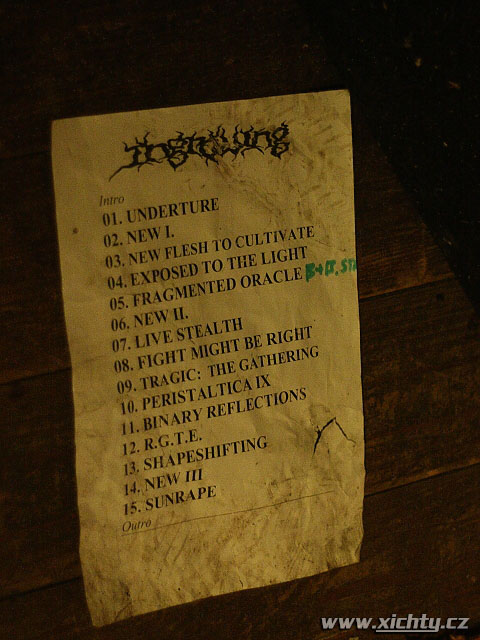 Ingrowing
Intro
01. UNDERTURE
02. NEW I.
03. NEW FLESH TO CULTIVATE
04. EXPOSED TO THE LIGHT
05. FRAGMENTED ORACLE
06. NEW II.
07. LIVE STEALTH
08. FIGHT MIGHT BE RIGHT
09. TRAGIC: THE GATHERING
10. PERISTALTICA IX
11. BINARY REFLECTIONS
12. R.G.T.E.
13. SHAPESHIFTING
14. NEW III
15. SUNRAPE
Outro
www.xichty.cz